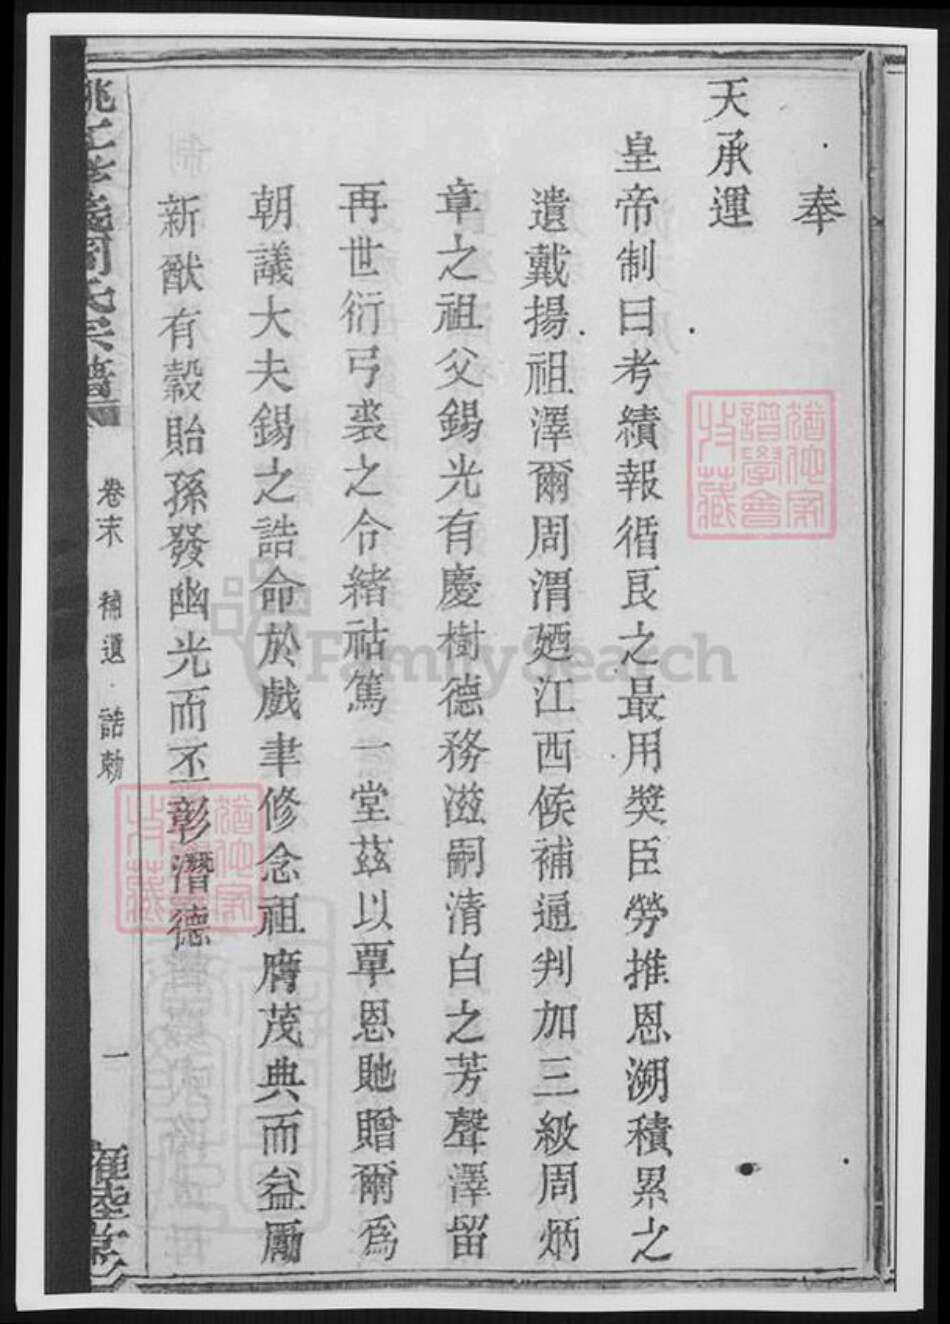 奉
天承運
皇帝制曰考績報循良之最用獎臣勞推恩溯積累之
遺戴揚祖澤爾周渭廼江西候補通判加三級周炳
章之祖父錫光有慶樹德務滋嗣清白之芳聲澤留
再世衍弓裘之令緒祜篤一堂茲以覃恩貤贈爾為
朝議大夫錫之誥命於戲聿修念祖膺茂典而益勵
新猷有穀貽孫發幽光而丕彰潛德
周氏宗譜
卷末
補遺
誥勅
一
睦堂
譜學會
收藏
FamilySearch